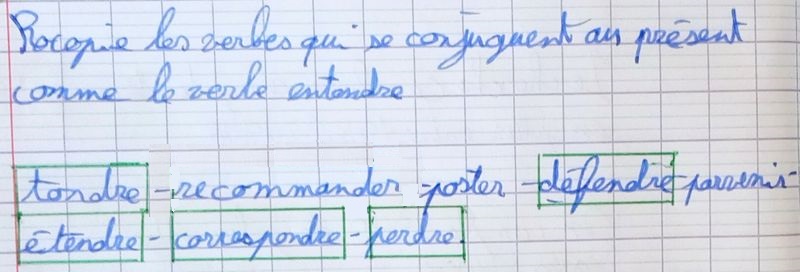 Recopie les verbes qui se conjuguent au présent
comme le verbe entendre
tondre - recommander - poster - défendre - parvenir -
étendre - correspondre - perdre